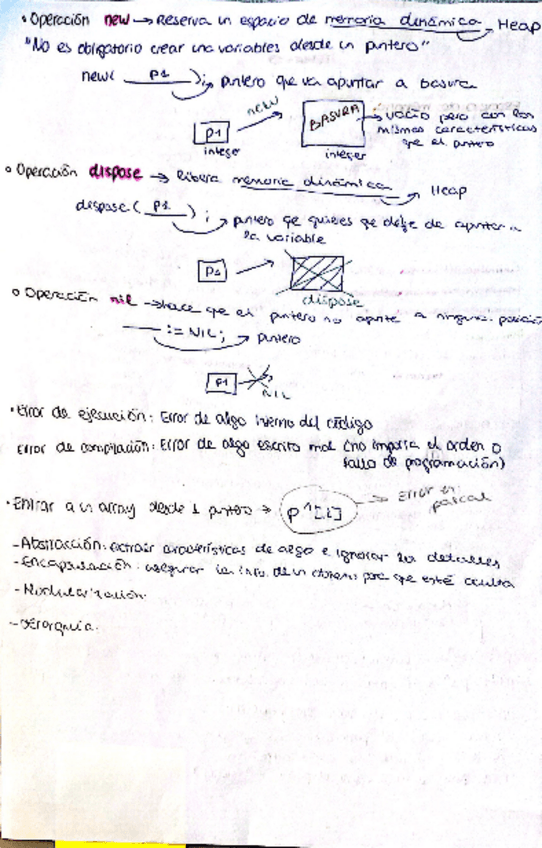 • Operación new → Reserva un espacio de memoria dinámica → Heap
"No es obligatorio crear una variables desde un puntero"
new( P1 ); → puntero que va apuntar a basura
new
P1 → BASURA → vacío pero con las
mismas características
que el puntero
integer integer
• Operación dispose → libera memoria dinámica → Heap
dispose( P1 ); → puntero qe quieres qe deje de apuntar a
la variable
P1 →
dispose
• Operación nil → hace que el puntero no apunte a ninguna posición
:= NIL; → puntero
P1 → NIL
• Error de ejecución: Error de algo interno del código
Error de compilación: Error de algo escrito mal (no importa el orden o
fallo de programación)
• Entrar a un array desde 1 puntero → P^[i] → Error en
pascal
- Abstracción: extraer características de algo e ignorar los detalles
- Encapsulación: asegurar la info. de un objeto para que esté oculta
- Modularización:
- Jerarquía: